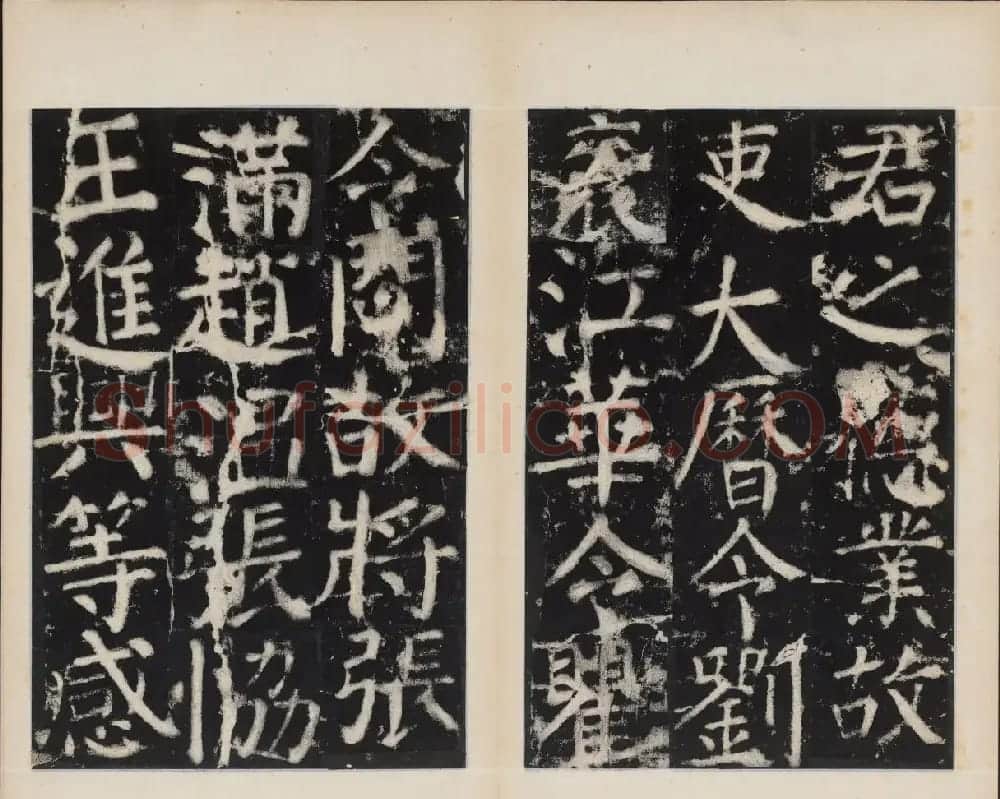 君之業故
吏大曆令劉
袞江華令瞿
令問故將張
滿趙溫張協
王進興等感
Shufaziliao.COM